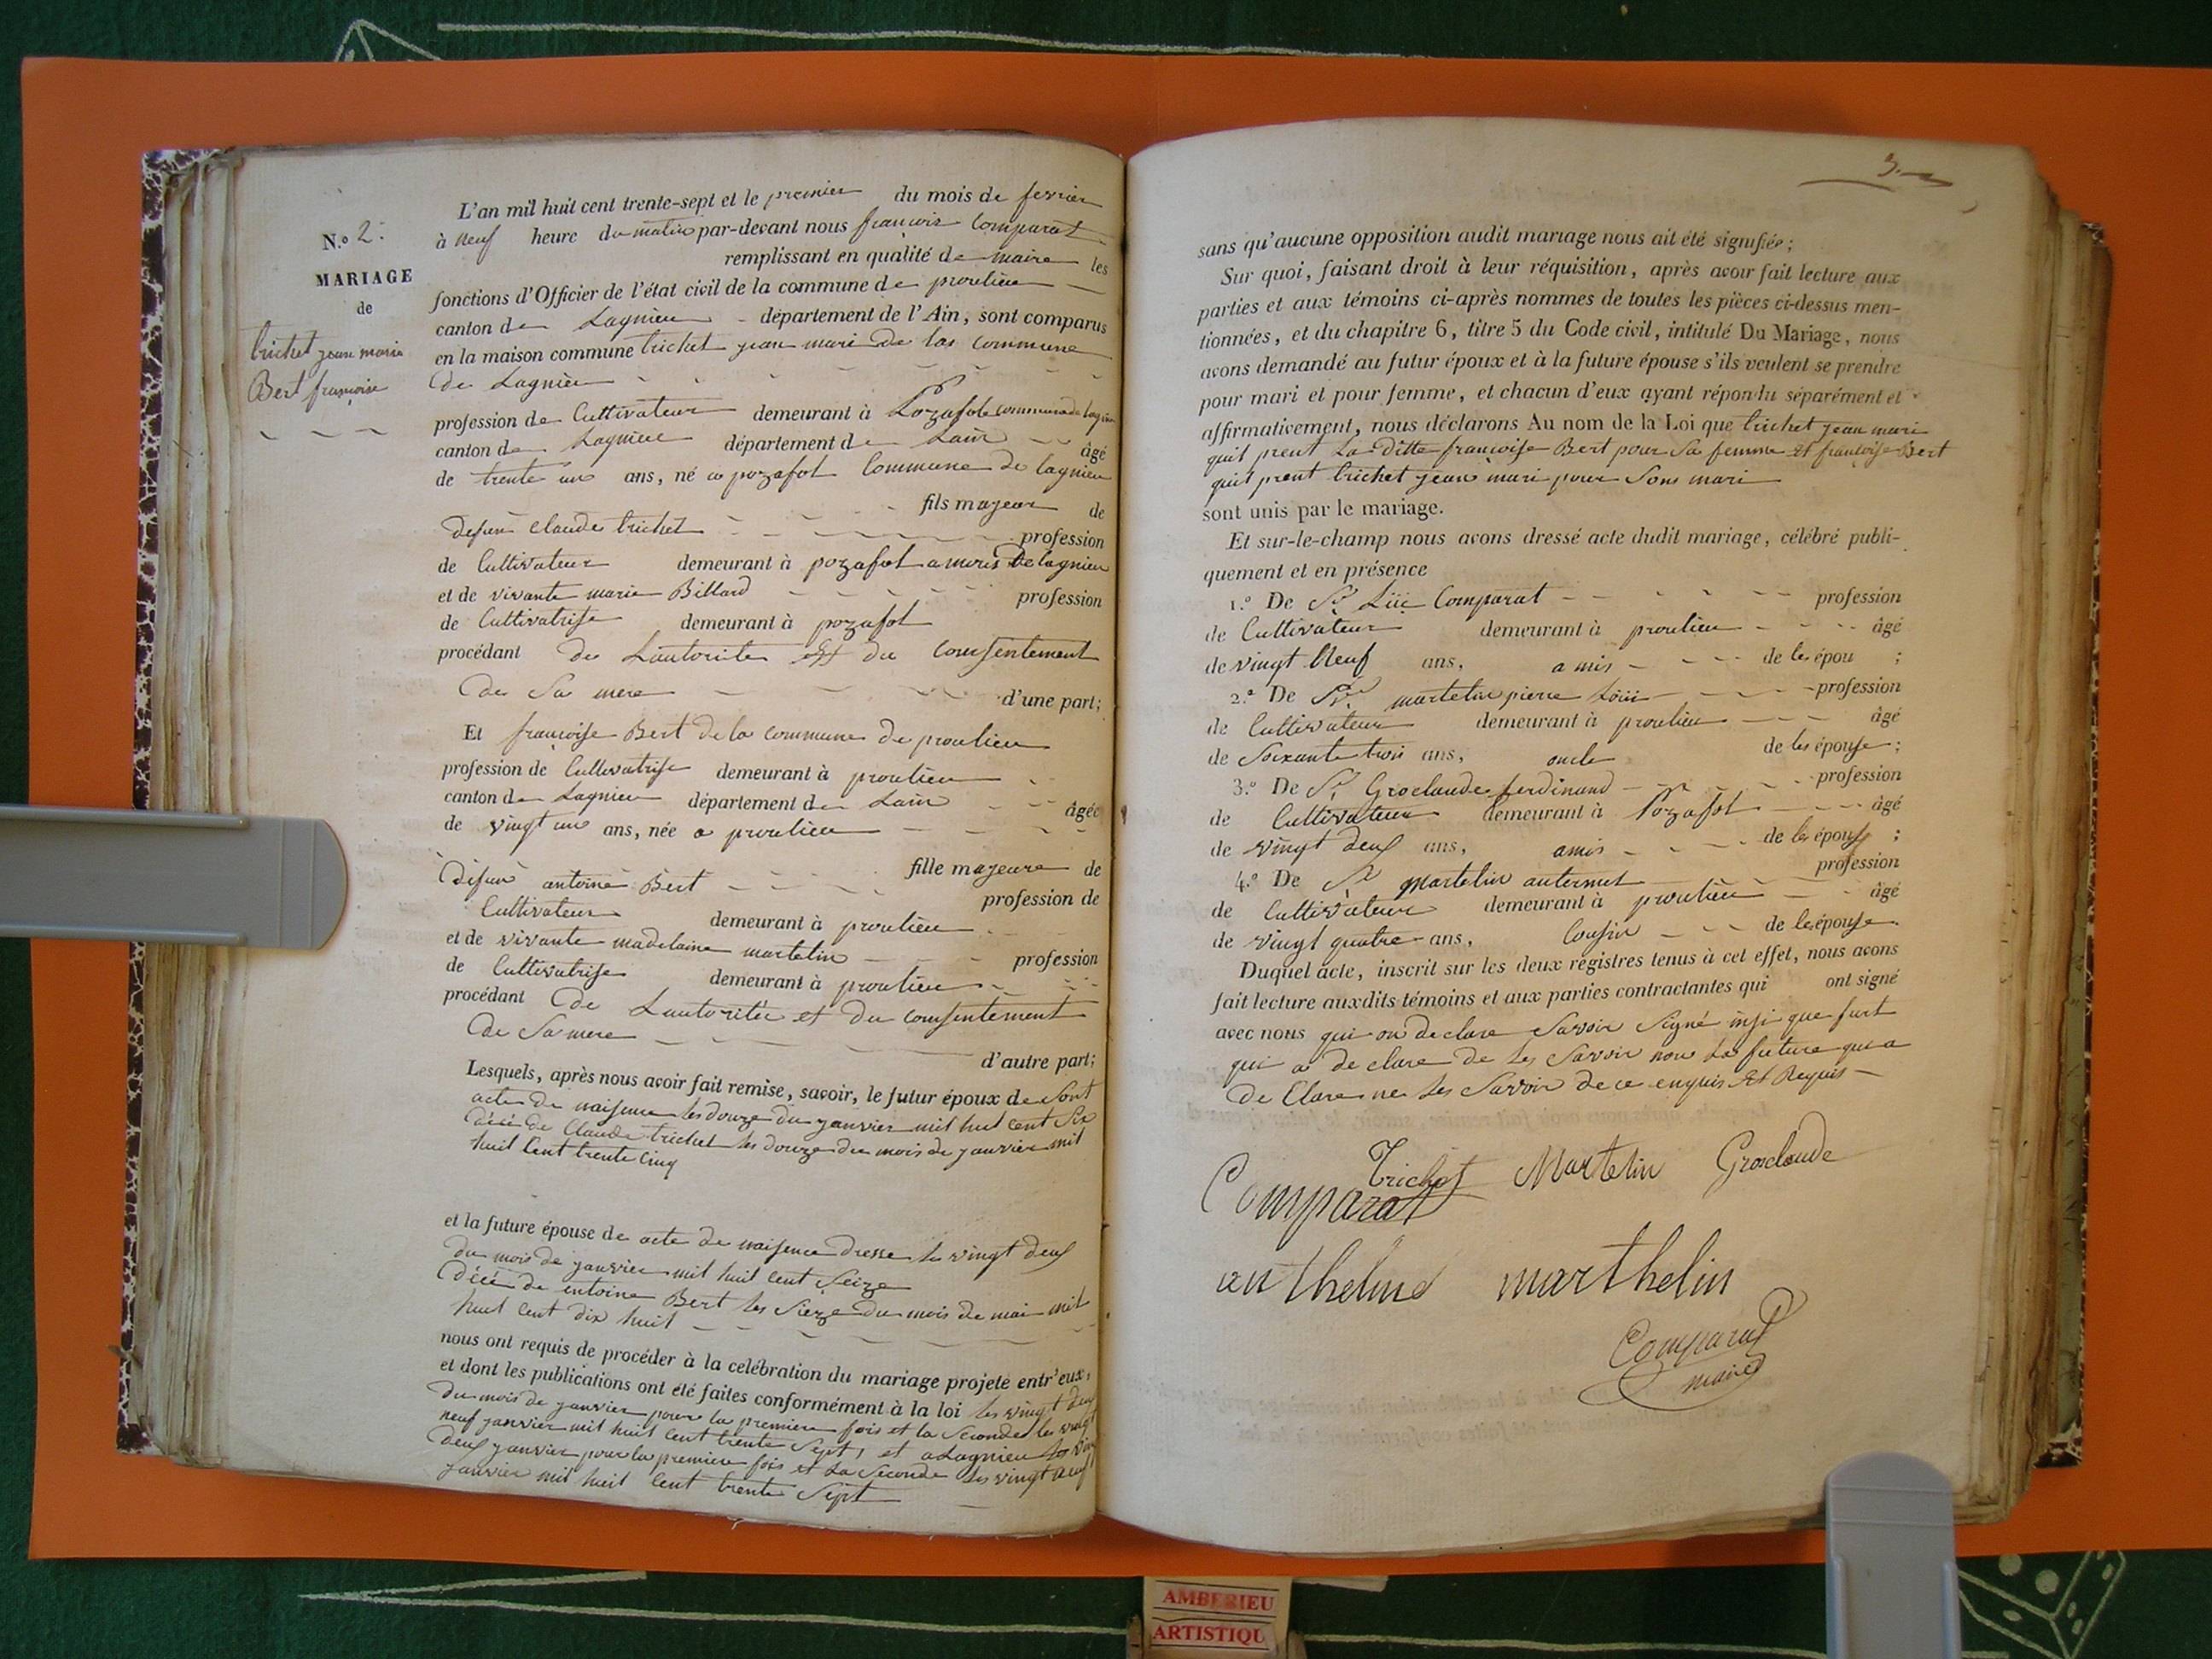 N.o 2.
MARIAGE
de
trichet jean marie
Bert françoise
L'an mil huit cent trente-sept et le premier du mois de fevrier
à neuf heure du matin par-devant nous françois Comparat
remplissant en qualité de maire les
fonctions d'Officier de l'état civil de la commune de proulieu
canton de Lagnieu département de l'Ain, sont comparus
en la maison commune trichet jean mari de las commune
de Lagnieu
profession de Cultivateur demeurant à Pozafol commune de lagnieu
canton de Lagnieu département de Lain âgé
de trente un ans, né a pozafol Commune de lagnieu
fils majeur de
defun claude trichet profession
de Cultivateur demeurant à pozafol de lagnieu
et de vivante marie Billard profession
de Cultivatrise demeurant à pozafol
procédant de Lautorite du consentement
de Sa mere d'une part;
Et françoise Bert de la commune de proulieu
profession de Cultivatrise demeurant à proulieu
canton de Lagnieu département de Lain âgée
de vingt un ans, née a proulieu
fille majeure de
defun antoine Bert profession de
Cultivateur demeurant à proulieu
et de vivante madelaine martelin profession
de Cultivatrise demeurant à proulieu
procédant de Lautoritée et du consentement
de Sa mere d'autre part;
Lesquels, après nous avoir fait remise, savoir, le futur époux de Sont
acte de naisence les douze du janvier mil huit cent Six
décé de Claude trichet les douze du mois de janvier mil
huit Cent trente Cinq
et la future épouse de acte de naisence dresse le vingt deux
du mois de janvier mil huit Cent Seize
décé de entoine Bert les Sieze du mois de mai mil
huit Cent dix huit
nous ont requis de procéder à la celébration du mariage projeté entr'eux,
et dont les publications ont été faites conformément à la loi les vingt deux
du mois de janvier pour la premiere fois et la Seconde les vingt
neuf janvier mil huit Cent trente Sept, et a Lagnieu les vingt
deux janvier pour la premiere fois et La Seconde les vingt neuf
janvier mil huit Cent trente Sept
3
sans qu'aucune opposition audit mariage nous ait été signifiée;
Sur quoi, faisant droit à leur réquisition, après avoir fait lecture aux
parties et aux témoins ci-après nommes de toutes les pièces ci-dessus men-
tionnées, et du chapitre 6, titre 5 du Code civil, intitulé Du Mariage, nous
avons demandé au futur époux et à la future épouse s'ils veulent se prendre
pour mari et pour femme, et chacun d'eux ayant répondu séparément et
affirmativement, nous déclarons Au nom de la Loi que trichet jean mari
quit prent La ditte françoise Bert pour Sa femme et françoise Bert
quit prent trichet jean mari pour Sons mari
sont unis par le mariage.
Et sur-le-champ nous avons dressé acte dudit mariage, célébré publi-
quement et en présence
1.o De Sr Comparat profession
de Cultivateur demeurant à proulieu âgé
de vingt Neuf ans, a mis de les épou ;
2.o De Sr martelin pierre profession
de Cultivateur demeurant à proulieu âgé
de Soixante trois ans, oncle de les épouse ;
3.o De Sr Groclaude ferdinand profession
de Cultivateur demeurant à Pozafol âgé
de vingt deux ans, amis de les épouse ;
4.o De Sr martelin profession
de Cultivateur demeurant à proulieu âgé
de vingt quatre ans, Cousin de les épouse
Duquel acte, inscrit sur les deux registres tenus à cet effet, nous avons
fait lecture auxdits témoins et aux parties contractantes qui ont signé
avec nous qui on declare Savoir Signé insi que
qui a de clare de Les Savoir non La future qui a
de Clare ne Les Savoir de ce enquis et Requis
Comparat Trichet Martelin Grosclaude
anthelme marthelin
Comparat
maire
AMBERIEU
ARTISTIQU